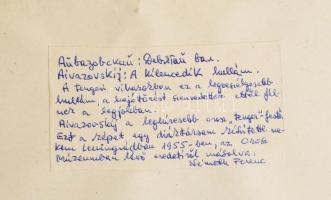 Айвазовский: Девятый вал.
Aivazovszkij: A kilencedik hullám.
A tengeri viharokban ez a legveszélyesebb
hullám, a hajótörést szenvedettek ettől fél-
nek a legjobban.
Aivazovszkij a leghíresebb orosz "tenger"-festő.
Ezt a képet egy diáktársam készítette ne-
kem Leningrádban 1955-ben, az Orosz
Múzeumban lévő eredetiről másolva.
Németh Ferenc